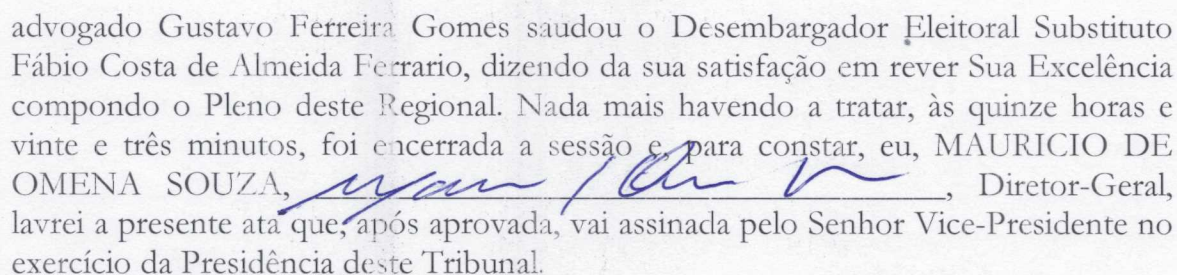 advogado Gustavo Ferreira Gomes saudou o Desembargador Eleitoral Substituto
Fábio Costa de Almeida Ferrario, dizendo da sua satisfação em rever Sua Excelência
compondo o Pleno deste Regional. Nada mais havendo a tratar, às quinze horas e
vinte e três minutos, foi encerrada a sessão e, para constar, eu, MAURICIO DE
OMENA SOUZA, , Diretor-Geral,
lavrei a presente ata que, após aprovada, vai assinada pelo Senhor Vice-Presidente no
exercício da Presidência deste Tribunal.